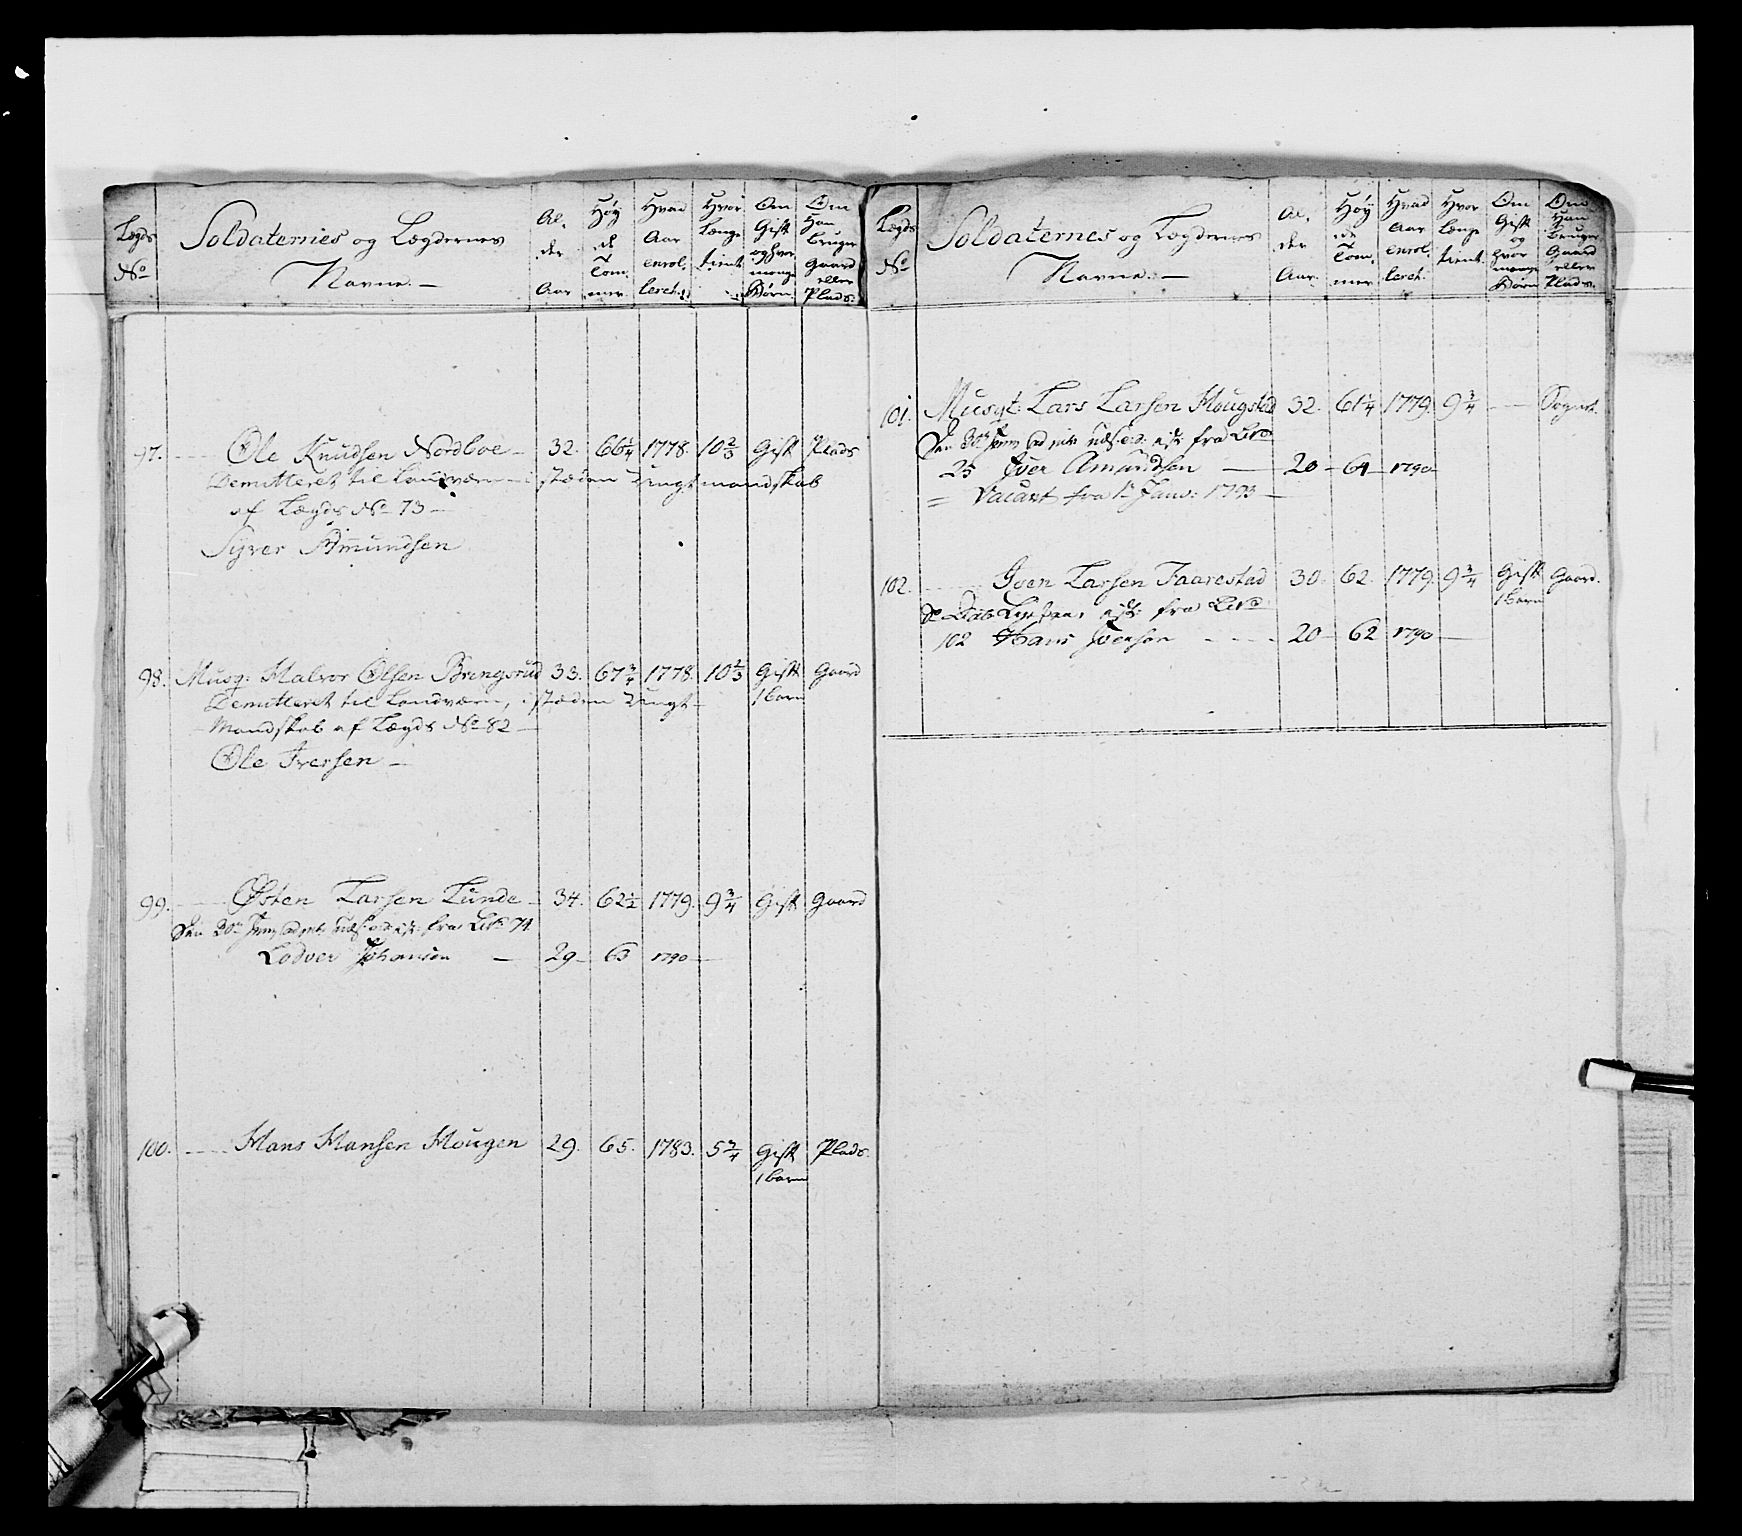 Lægds No
Soldaternes og Lægdernes Navne. —
Al, der Aar
Høy de Tom, mer
Hvad Aar enrol, leret.
Hvor Længe tient
Om Gift og hvor mange Børn
Om Han Bruger Gaard eller Plads.
97. Ole Knudsen Nordboe — 32. 66 1/4 1778. 10 2/3 Gift Plads
Demitteret til Landværn — i stæden Ungt mandskab
af Lægds No 73 —
Syver Amundsen
98. Musq: Halvor Olsen Bringsrud 33. 67 3/4 1778. 10 2/3 Gift Gaard
1 barn
Demitteret til Landværn, i stæden Ungt —
Mandskab af Lægds No 82 —
Ole Iversen —
99. Østen Larsen Lunde 34. 62 1/2 1779. 9 3/4 Gift Gaard
Den 30 fra 74
Lodver Johansen — 29 — 63 1790 —
100. Hans Hansen Hougen 29. 65. 1783. 5 3/4 Gift Plads.
1 barn
Lægds No
Soldaternes og Lægdernes Navne. —
Al, der Aar.
Høy de Tom, mer
Hvad Aar enrol, leret.
Hvor Længe tient.
Om Gift og hvor mange Børn
Om Han Bruger Gaard eller Plads.
101. Musqt: Lars Larsen Hougstad 32. 61 1/4 1779. 9 3/4
Den 30 fra
25 Iver Amundsen — 20 — 64 — 1790
= Vacant fra 1 Janv: 1793 —
102. Iven Larsen Faarestad 30. 62. 1779. 9 3/4 Gift Gaard.
1 barn
fra
102 Hans Ivensen 20 — 62 1790 —